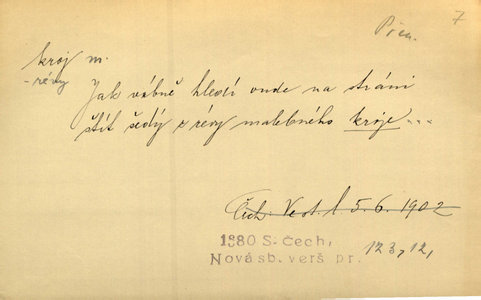 7
Přen.
kroj m.
-révy
Jak vábně hledí onde na stráni
štít šedý z révy malebného kroje ...
Čch. Vest. l 5. 6. 1902
1880 S. Čech,
Novásb. verš pr.
123, 12,